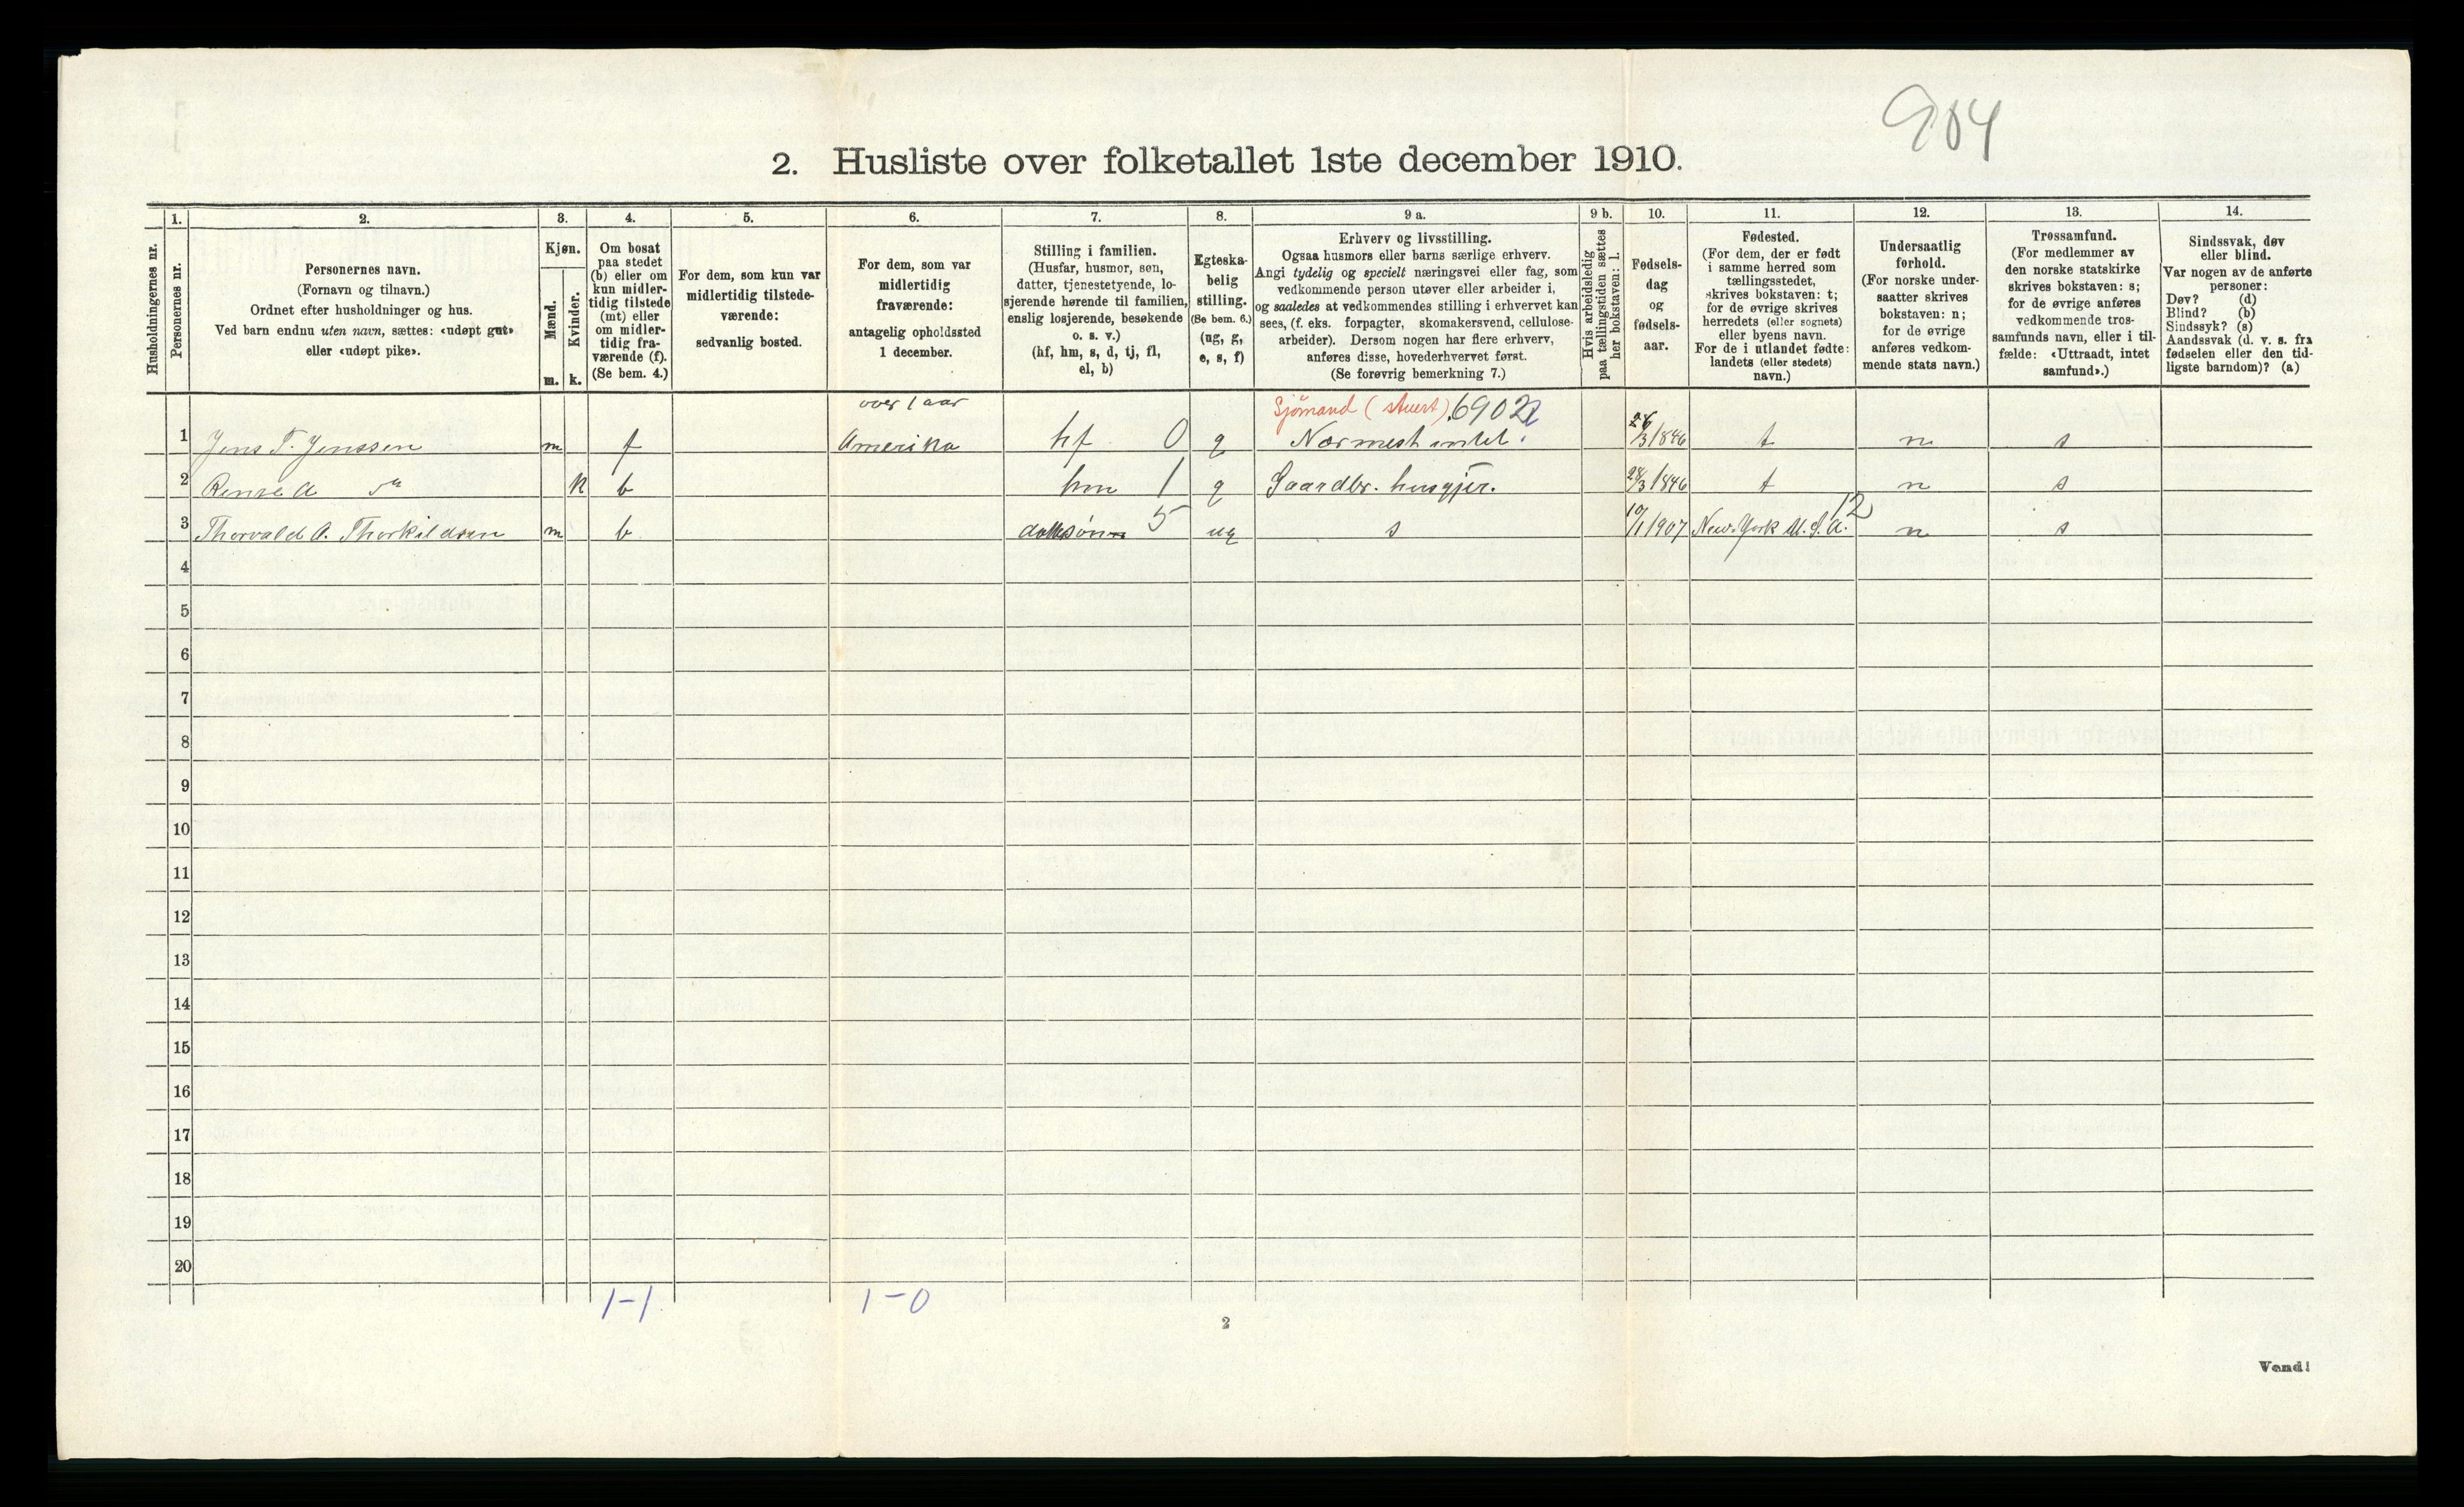 904
2. Husliste over folketallet 1ste december 1910.
Husholdningernes nr.
1.
Personernes nr.
2.
Personernes navn.
(Fornavn og tilnavn.)
Ordnet efter husholdninger og hus.
Ved barn endnu uten navn, sættes: «udøpt gut»
eller «udøpt pike».
3.
Kjøn.
Mænd.
m.
Kvinder.
k.
4.
Om bosat
paa stedet
(b) eller om
kun midler-
tidig tilstede
(mt) eller
om midler-
tidig fra-
værende (f).
(Se bem. 4.)
5.
For dem, som kun var
midlertidig tilstede-
værende:
sedvanlig bosted.
6.
For dem, som var
midlertidig
fraværende:
antagelig opholdssted
1 december.
7.
Stilling i familien.
(Husfar, husmor, søn,
datter, tjenestetyende, lo-
sjerende hørende til familien,
enslig losjerende, besøkende
o. s. v.)
(hf, hm, s, d, tj, fl,
el, b)
8.
Egteska-
belig
stilling.
(Se bem. 6.)
(ug, g,
e, s, f)
9 a.
Erhverv og livsstilling.
Ogsaa husmors eller barns særlige erhverv.
Angi tydelig og specielt næringsvei eller fag, som
vedkommende person utøver eller arbeider i,
og saaledes at vedkommendes stilling i erhvervet kan
sees, (f. eks. forpagter, skomakersvend, cellulose-
arbeider). Dersom nogen har flere erhverv,
anføres disse, hovederhvervet først.
(Se forøvrig bemerkning 7.)
9 b.
Hvis arbeidsledig
paa tællingstiden sættes
her bokstaven: l.
10.
Fødsels-
dag
og
fødsels-
aar.
11.
Fødested.
(For dem, der er født
i samme herred som
tællingsstedet,
skrives bokstaven: t;
for de øvrige skrives
herredets (eller sognets)
eller byens navn.
For de i utlandet fødte:
landets (eller stedets)
navn.)
12.
Undersaatlig
forhold.
(For norske under-
saatter skrives
bokstaven: n;
for de øvrige
anføres vedkom-
mende stats navn.)
13.
Trossamfund.
(For medlemmer av
den norske statskirke
skrives bokstaven: s;
for de øvrige anføres
vedkommende tros-
samfunds navn, eller i til-
fælde: «Uttraadt, intet
samfund».)
14.
Sindssvak, døv
eller blind.
Var nogen av de anførte
personer:
Døv? (d)
Blind? (b)
Sindssyk? (s)
Aandssvak (d. v. s. fra
fødselen eller den tid-
ligste barndom)? (a)
over 1 aar Sjømand (stuert) 6902
1 Jens T. Jenssen m f Amerika hf 0 g Nærmest intet. 26/3 1846 t n s
2 A k b hm 1 g Gaardbr. husgjer. 28/3 1846 t n s
3 Thorvald A. Thorkildsen m b dattersønn 5 ug s 10/1 1907 New-York U.S.A. 12 n s
4
5
6
7
8
9
10
11
12
13
14
15
16
17
18
19
20
1-1 1-0
2
Vend!